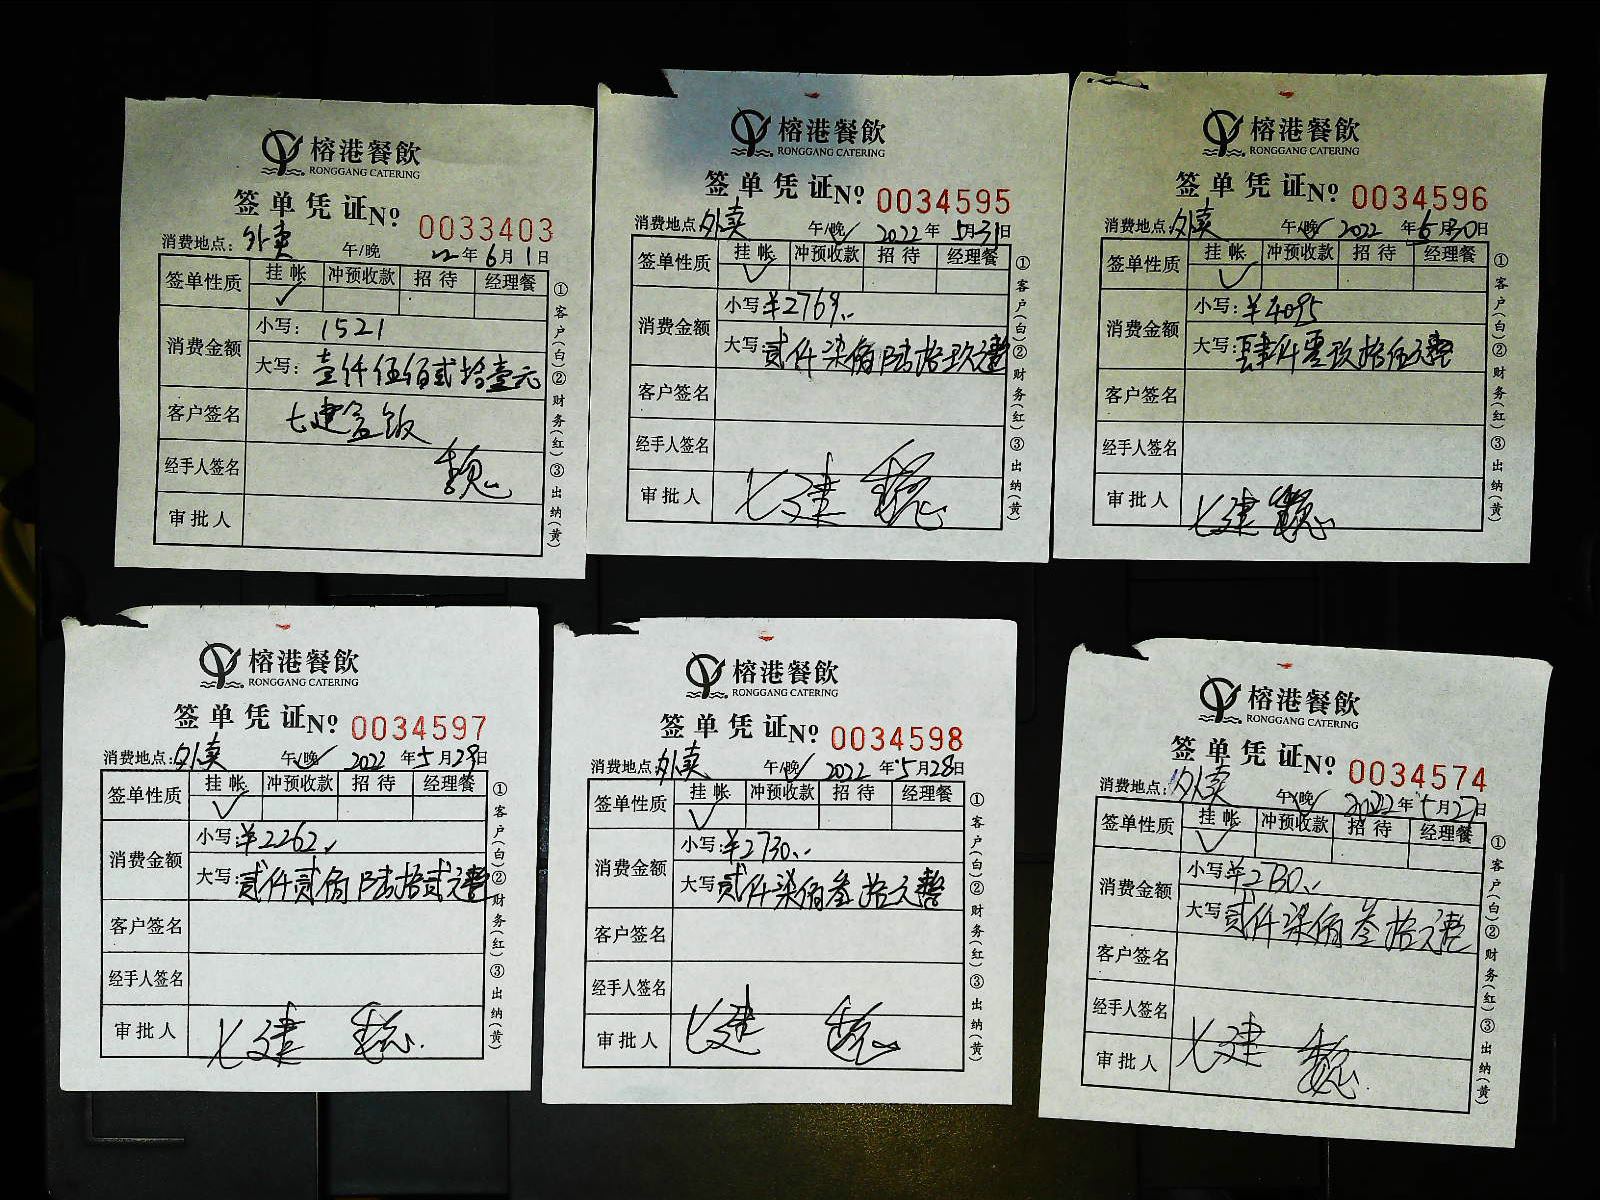 榕港餐飲
RONGGANG CATERING
签单凭证№ 0033403
消费地点：外卖 午/晚 22年6月1日
签单性质 挂帐 冲预收款 招待 经理餐
✓
消费金额 小写：1521
大写：壹仟伍佰贰拾壹元
客户签名 七建盒饭
经手人签名 魏
审批人
①客户(白)②财务(红)③出纳(黄)
榕港餐飲
RONGGANG CATERING
签单凭证№ 0034595
消费地点：外卖 午/晚✓ 2022年5月31日
签单性质 挂帐 冲预收款 招待 经理餐
✓
消费金额 小写：¥2769
大写：贰仟柒佰陆拾玖元整
客户签名
经手人签名
审批人 七建 魏
①客户(白)②财务(红)③出纳(黄)
榕港餐飲
RONGGANG CATERING
签单凭证№ 0034596
消费地点：外卖 午/晚✓ 2022年5月30日
签单性质 挂帐 冲预收款 招待 经理餐
✓
消费金额 小写：¥4095
大写：肆仟零玖拾伍元整
客户签名
经手人签名
审批人 七建 魏
①客户(白)②财务(红)③出纳(黄)
榕港餐飲
RONGGANG CATERING
签单凭证№ 0034597
消费地点：外卖 午/晚✓ 2022年5月29日
签单性质 挂帐 冲预收款 招待 经理餐
✓
消费金额 小写：¥2262
大写：贰仟贰佰陆拾贰元整
客户签名
经手人签名
审批人 七建 魏
①客户(白)②财务(红)③出纳(黄)
榕港餐飲
RONGGANG CATERING
签单凭证№ 0034598
消费地点：外卖 午/晚✓ 2022年5月28日
签单性质 挂帐 冲预收款 招待 经理餐
✓
消费金额 小写：¥2730
大写：贰仟柒佰叁拾元整
客户签名
经手人签名
审批人 七建 魏
①客户(白)②财务(红)③出纳(黄)
榕港餐飲
RONGGANG CATERING
签单凭证№ 0034574
消费地点：外卖 午/晚✓ 2022年5月27日
签单性质 挂帐 冲预收款 招待 经理餐
✓
消费金额 小写：¥2730
大写：贰仟柒佰叁拾元整
客户签名
经手人签名
审批人 七建 魏
①客户(白)②财务(红)③出纳(黄)